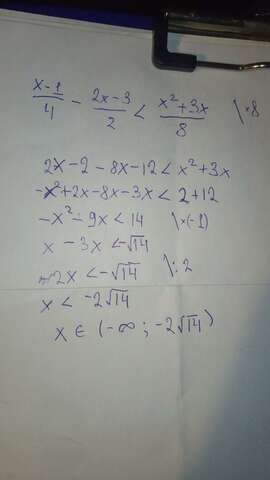 x-1/4 - 2x-3/2 < x²+3x/8 \·8
2x-2-8x-12<x²+3x
-x²+2x-8x-3x<2+12
-x²-9x<14 \·(-1)
x-3x<-√14
-2x<-√14 \:2
x<-2√14
x∈(-∞;-2√14)